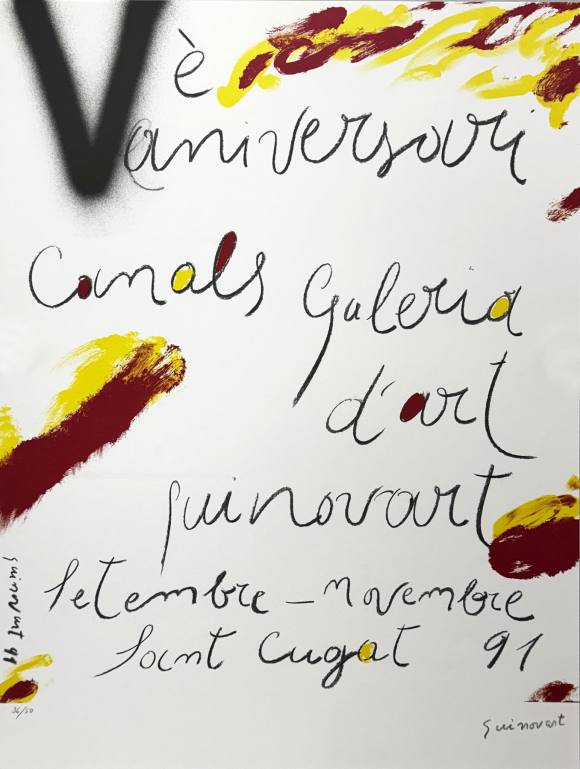 Vè
aniversari
Canals Galeria
d'art
guinovart
Setembre - Novembre
Sant Cugat 91
guinovart 91
36/50
Guinovart